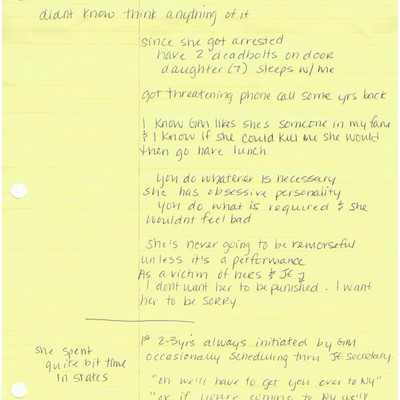 didnt know think anything of it
since she got arrested
have 2 deadbolts on door
daughter (7) sleeps w/me
got threatening phone call some yrs back
I know GM likes she's someone in my fam
& I know if she could kill me she would
then go have lunch
you do whatever is necessary
she has obsessive personality
you do what is required & she
wouldnt feel bad
she's never going to be remorseful
unless it's a performance
As a victim of hers & JE
I dont want her to be punished. I want
her to be SORRY
she spent
quite bit time
in states
1st 2-3yrs always initiated by GM
occasionally scheduling thru JE secretary.
"oh we'll have to get you over to NY"
"or if you're coming to NY we'll